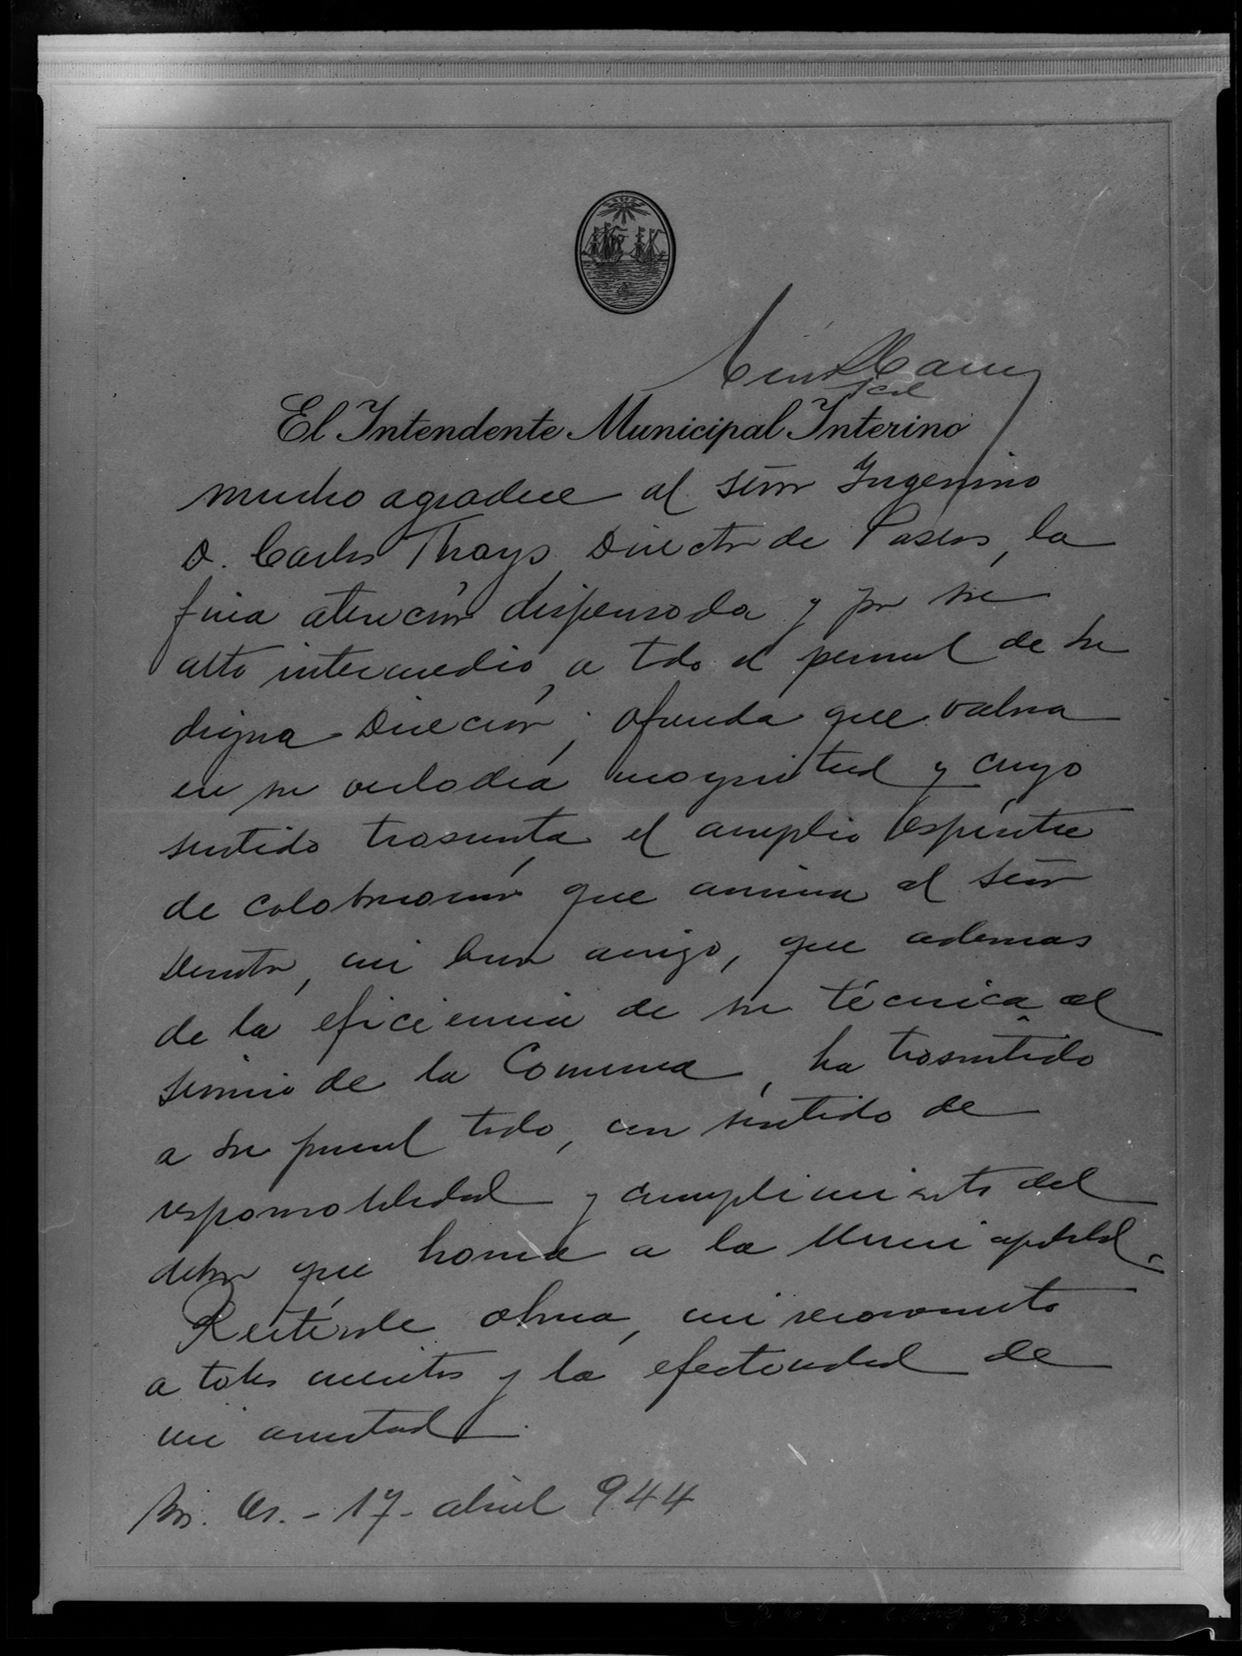 El Intendente Municipal Interino
mucho agradece al señor Ingeniero
D. Carlos Thays, Director de Paseos, la
fina atención dispensada y por su
alto intermedio, a todo el personal de su
digna Dirección; ofrenda que valora
en su verdadera magnitud y cuyo
sentido trasunta el amplio espíritu
de colaboración que anima al señor
Director, mi buen amigo, que además
de la eficiencia de su técnica al
servicio de la Comuna, ha trasmitido
a su personal todo, un sentido de
responsabilidad y cumplimiento del
deber que honra a la Municipalidad.
Reitérole ahora, mi reconocimiento
a tales méritos y la efectividad de
mi amistad.
Bs. As. - 17 - abril 944